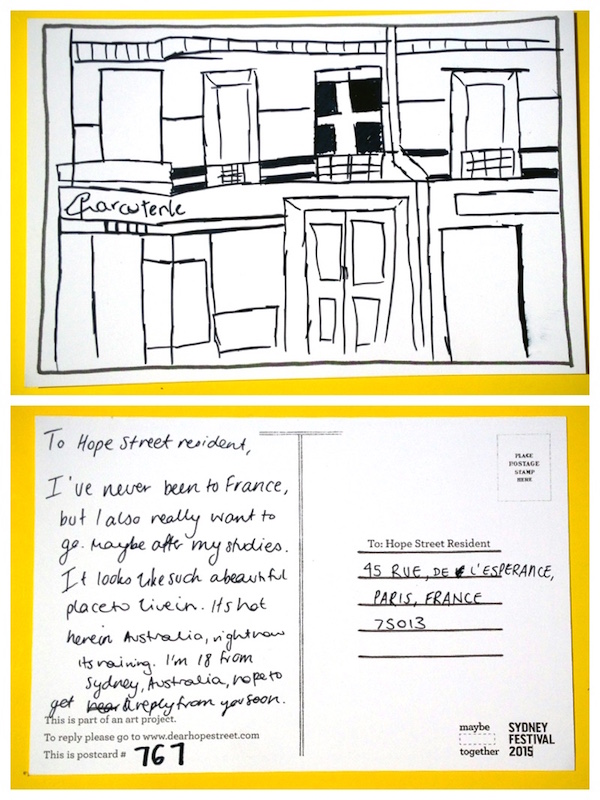 Charcuterie
To Hope Street resident,
I've never been to France,
but I also really want to
go. Maybe after my studies.
It looks like such a beautiful
place to live in. Its hot
here in Australia, right now
its raining. I'm 18 from
Sydney, Australia, hope to
get hear a reply from you soon.
This is part of an art project.
To reply please go to www.dearhopestreet.com
This is postcard # 767
PLACE
POSTAGE
STAMP
HERE
To: Hope Street Resident
45 RUE, DE L'ESPERANCE,
PARIS, FRANCE
75013
maybe
together
SYDNEY
FESTIVAL
2015